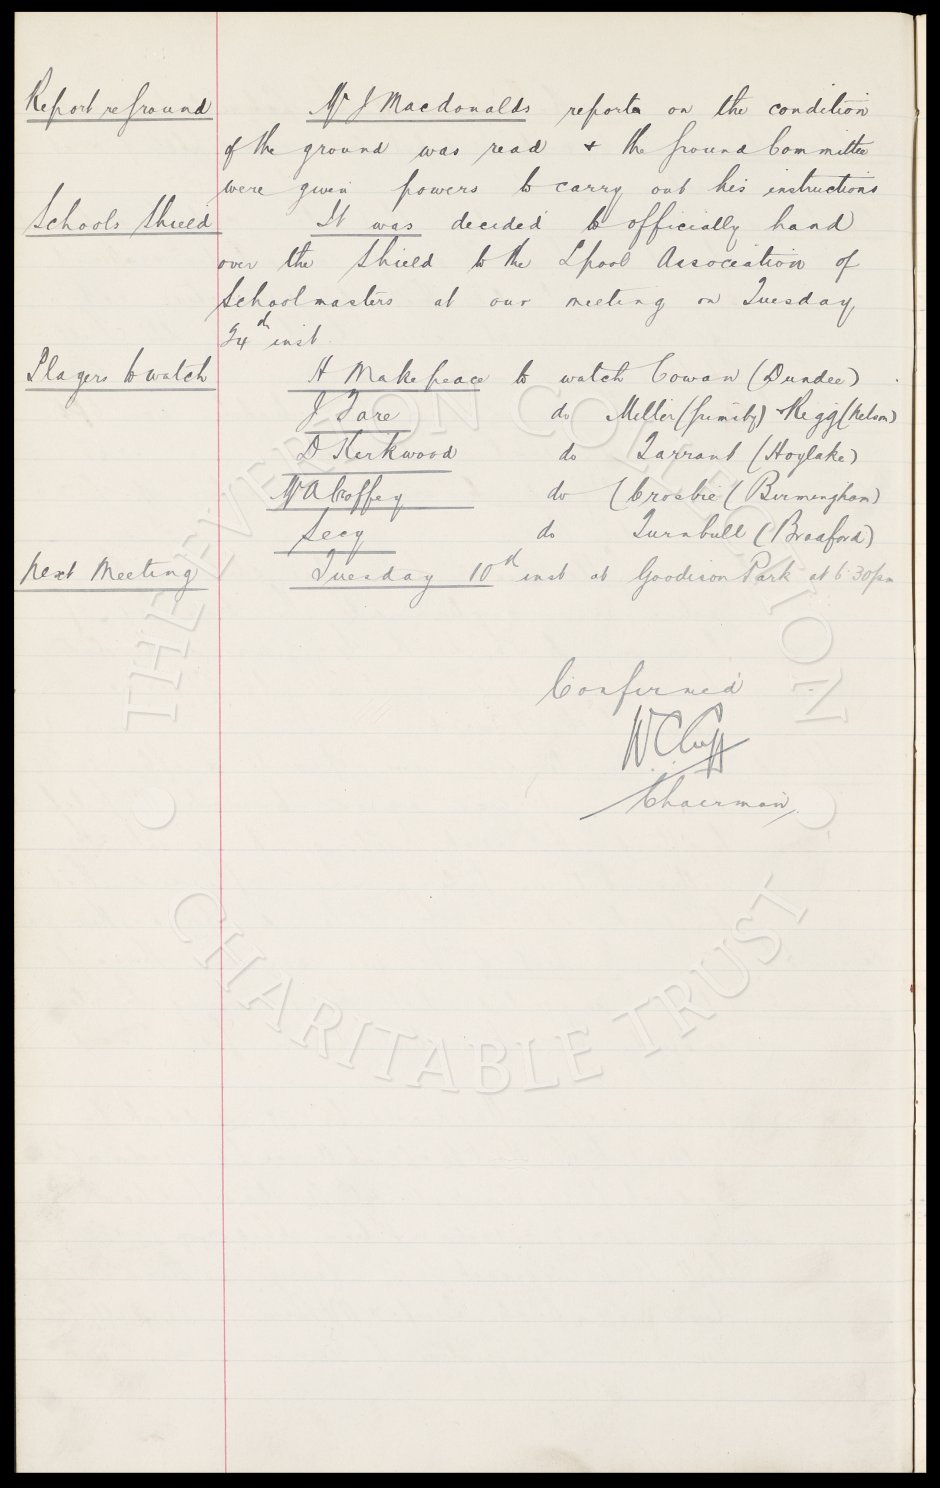 Report re Ground Mr J Macdonalds report on the condition
of the ground was read & the Ground Committee
were given powers to carry out his instructions
Schools Shield It was decided to officially hand
over the Shield to the Lpool Association of
Schoolmasters at our meeting on Tuesday
24th inst.
Players to watch H Makepeace to watch Cowan (Dundee)
J Fare do Miller (Grimsby) Rigg (Nelson)
D Kirkwood do Tarrant (Hoylake)
Mr A Coffey do Crosbie (Birmingham)
Secy do Turnbull (Bradford)
Next Meeting Tuesday 10th inst at Goodison Park at 6.30pm
Confirmed
W.C. Cuff
Chairman
THE EVERTON COLLECTION
CHARITABLE TRUST